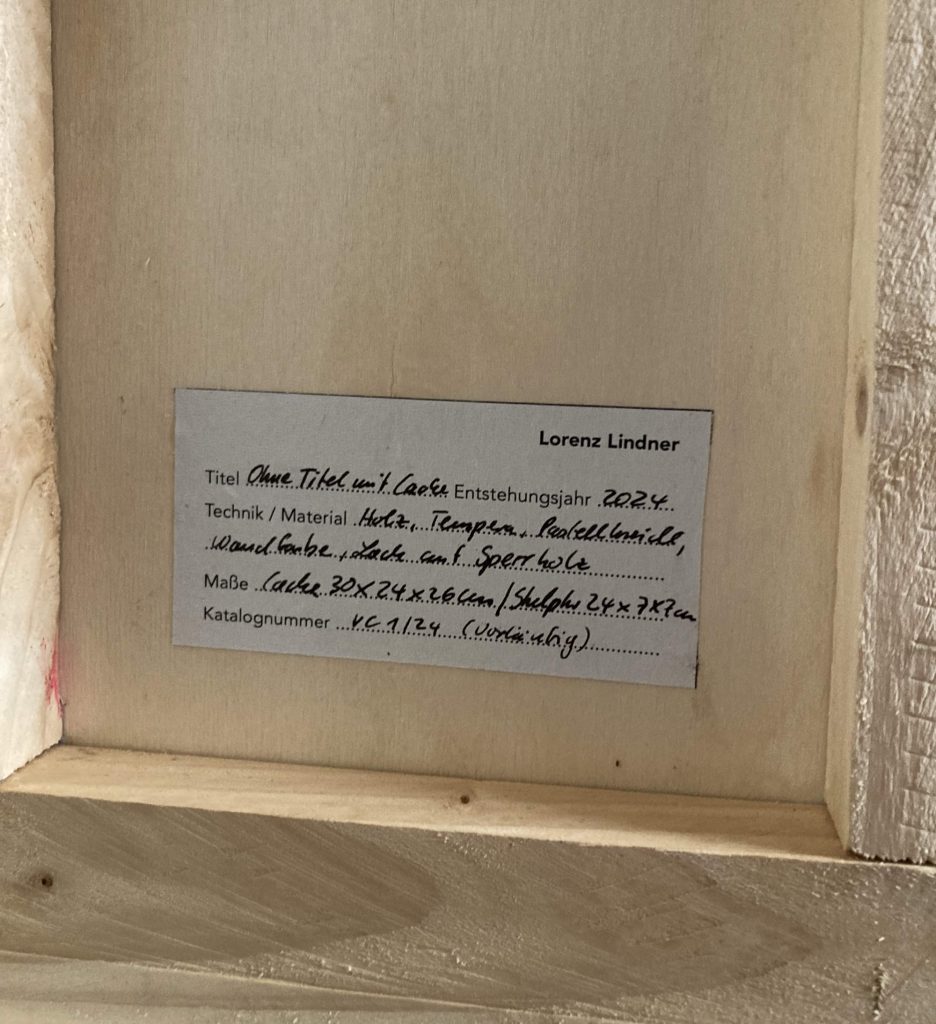 Lorenz Lindner
Titel Ohne Titel mit Cache Entstehungsjahr 2024
Technik / Material Holz, Tempera, Pastellkreide,
Wandfarbe, Lack auf Sperrholz
Maße Cache 30x24x26cm / Skulptur 24x7x7cm
Katalognummer VC 1/24 (vorläufig)